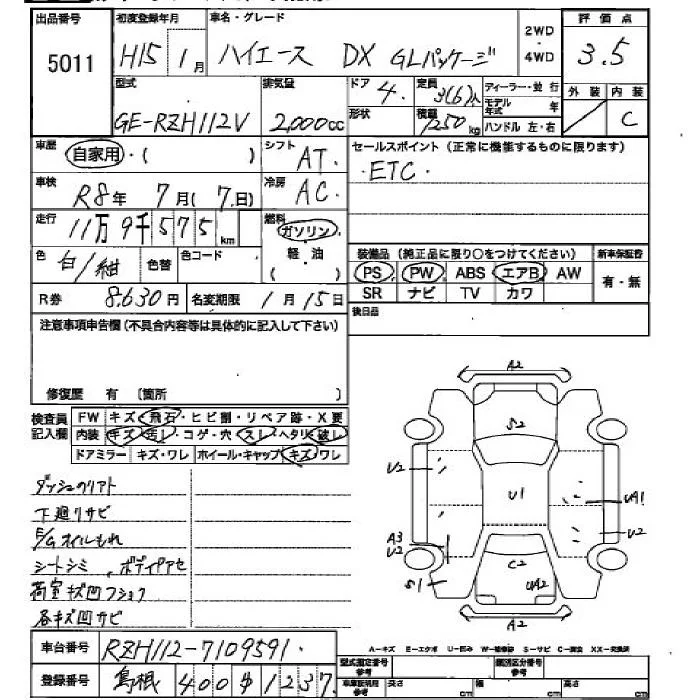 出品番号 初度登録年月 車名・グレード 2WD・4WD 評価点
5011 H15 1月 ハイエース DX GLパッケージ 3.5
型式 排気量 ドア 4. 定員 3(6)人 ディーラー・並行 外装 内装
GE-RZH112V 2,000cc 形状 積載 1250kg モデル年式 年 ハンドル 左・右 C
車歴 自家用・( ) シフト AT. セールスポイント (正常に機能するものに限ります)
車検 R8年 7月(7日) 冷房 AC. ・ETC・
走行 11万9千575km 燃料 ガソリン・軽油 ( )
色 白/紺 色替 色コード 装備品 (純正品に限り○をつけてください) 新車保証書
PS PW ABS エアB AW 有・無
R券 8,630円 名変期限 1月15日 SR ナビ TV カワ
注意事項申告欄 (不具合内容等は具体的に記入して下さい) 後日品
修復歴 有 〔箇所 〕
検査員記入欄 FW キズ・飛石・ヒビ割・リペア跡・X要
内装 キズ・汚レ・コゲ・穴・スレ・ヘタリ・破レ
ドアミラー キズ・ワレ ホイール・キャップ キズ・ワレ
ダッシュクリアト
下廻リサビ
E/Gオイルもれ
シートシミ、ボディアセ
荷室キズ凹フショク
各キズ凹サビ
A2
S2
U2
U1
UA1
U2
A3
U2
C2
UA2
S1
A2
車台番号 RZH112-7109591.
A-キズ E-エクボ U-凹み W-補修跡 S-サビ C-腐食 XX-交換済
登録番号 島根 400 す 1237
型式指定番号 参考 類別区分番号 参考
車庫証明用 参考 長さ cm 幅 cm 高さ cm